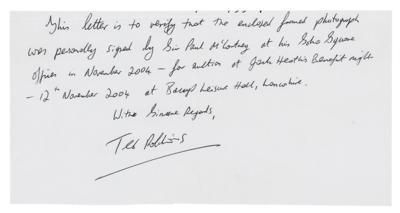 This letter is to verify that the enclosed framed photograph
was personally signed by Sir Paul McCartney at his Soho Square
offices in November 2004 – for auction at Benefit night
– 12th November 2004 at Leisure Hall, Lancashire.
With Sincere Regards,
Ted Robbins